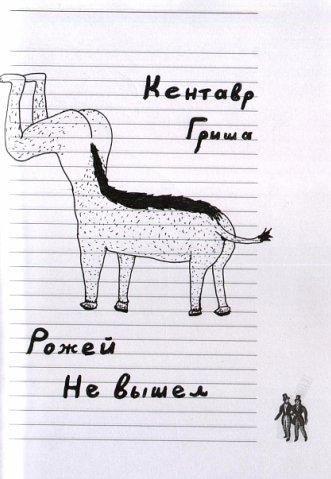 Кентавр
Гриша
Рожей
Не вышел